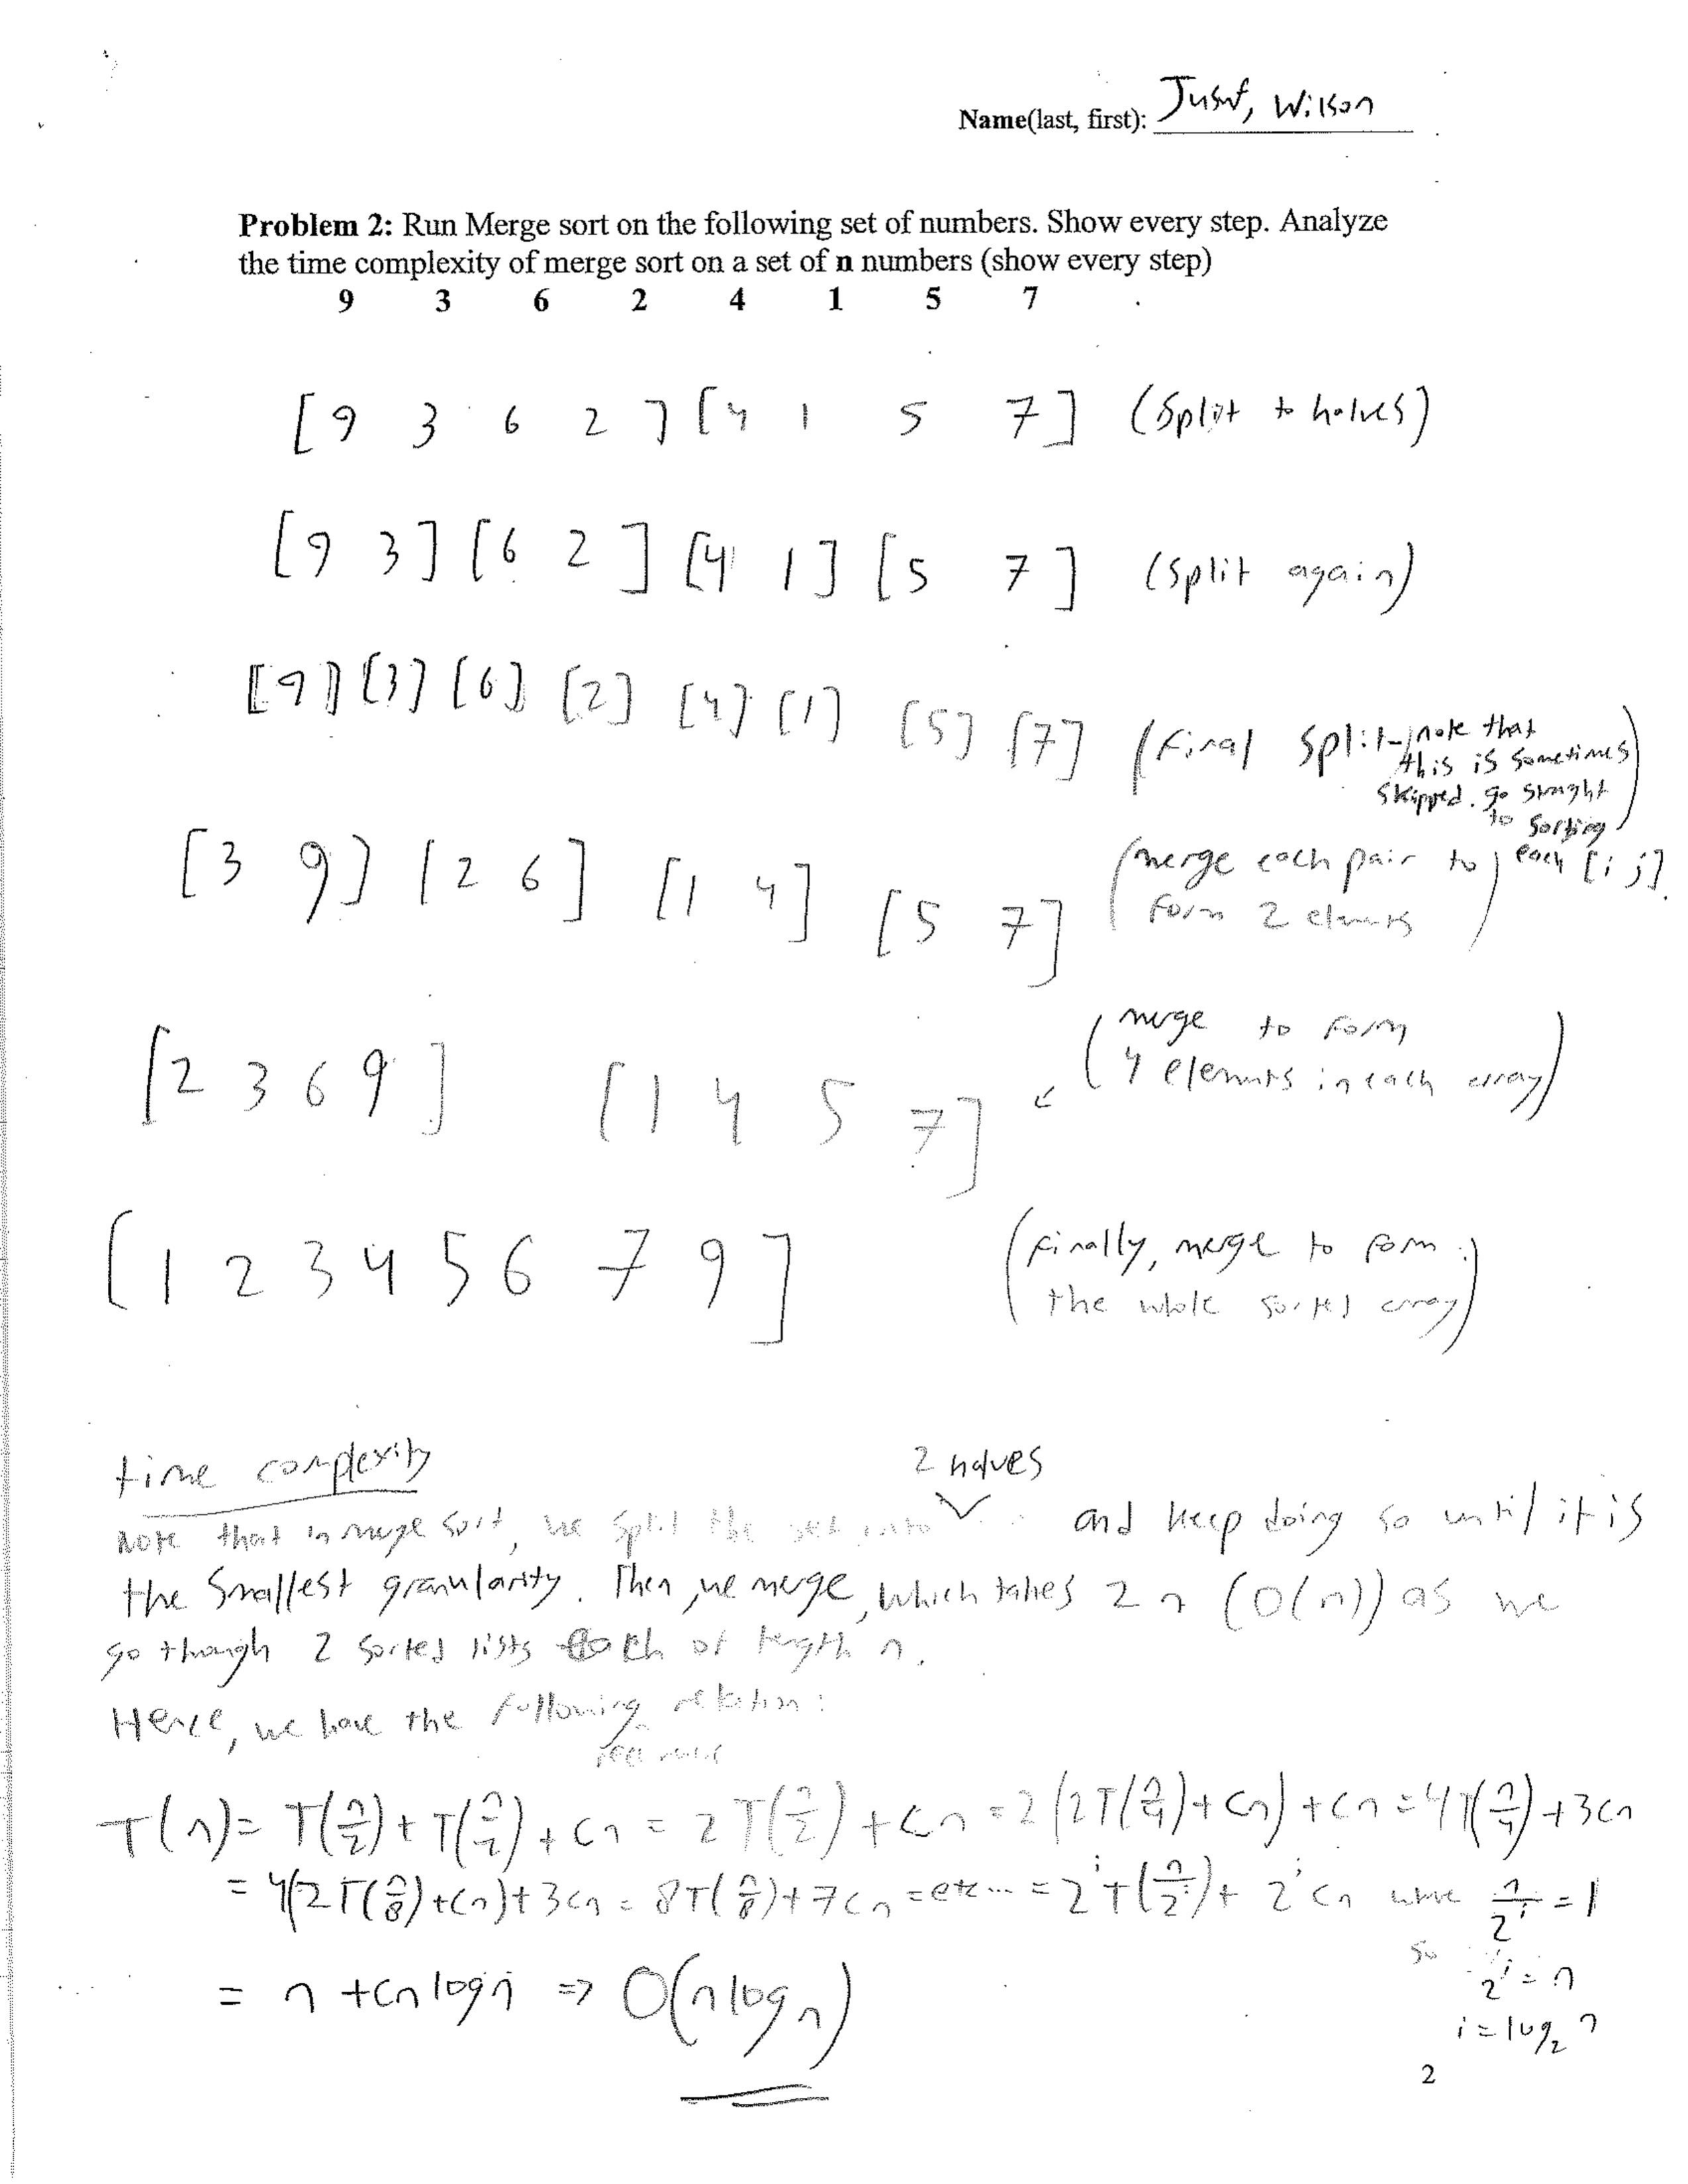 Name(last, first): Jusuf, Wilson
Problem 2: Run Merge sort on the following set of numbers. Show every step. Analyze
the time complexity of merge sort on a set of n numbers (show every step)
9 3 6 2 4 1 5 7
[9 3 6 2] [4 1 5 7] (split to halves)
[9 3] [6 2] [4 1] [5 7] (split again)
[9] [3] [6] [2] [4] [1] [5] [7] (final split - note that
this is sometimes
skipped. go straight
to sorting
each [i j].
[3 9] [2 6] [1 4] [5 7] (merge each pair to
form 2 elements)
[2 3 6 9] [1 4 5 7] (merge to form
4 elements in each array)
[1 2 3 4 5 6 7 9] (finally, merge to form
the whole sorted array)
time complexity
2 halves
Note that in merge sort, we split the set into and keep doing so until it is
the smallest granularity. Then, we merge, which takes 2n (O(n)) as we
go though 2 sorted lists each of length n.
Hence, we have the following relation:
T(n) = T(n/2) + T(n/2) + cn = 2T(n/2) + cn = 2(2T(n/4) + cn) + cn = 4T(n/4) + 3cn
= 4(2T(n/8) + cn) + 3cn = 8T(n/8) + 7cn = etc... = 2^i T(n/2^i) + 2^i cn where n/2^i = 1
so 2^i = n
i = log₂ n
= n + cn log n ⇒ O(n log n)
2